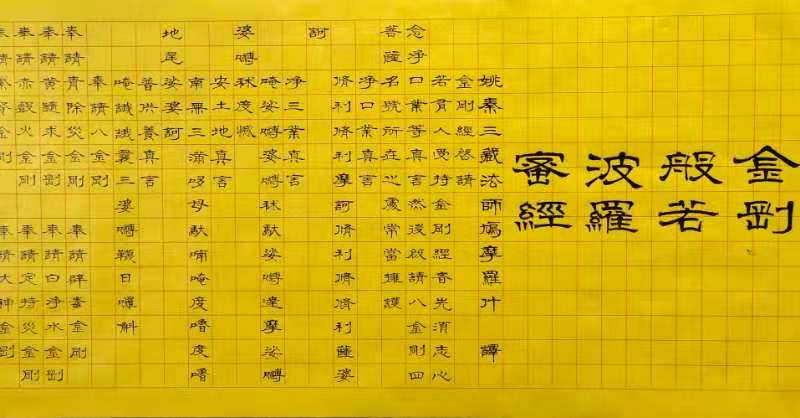 金剛
般若
波羅
蜜經
姚秦三藏法師鳩摩羅什 譯
金剛經啓請
若有人受持金剛經者先須志心
念淨口業等真言然後啟請八金剛四
菩薩名號所在之處常當擁護
淨口業真言
脩利脩利摩訶脩利脩利薩婆
訶
淨三業真言
唵娑嚩婆嚩秫馱娑嚩達摩娑嚩
婆嚩秫度憾
安土地真言
南無三滿哆母馱喃唵度嚕度嚕
地尾娑婆訶
普供養真言
唵誐誐曩三婆嚩韈日囉斛
奉請八金剛
奉請青除災金剛 奉請辟毒金剛
奉請黃隨求金剛 奉請白淨水金剛
奉請赤聲火金剛 奉請定持災金剛
奉請紫賢金剛 奉請大神金剛